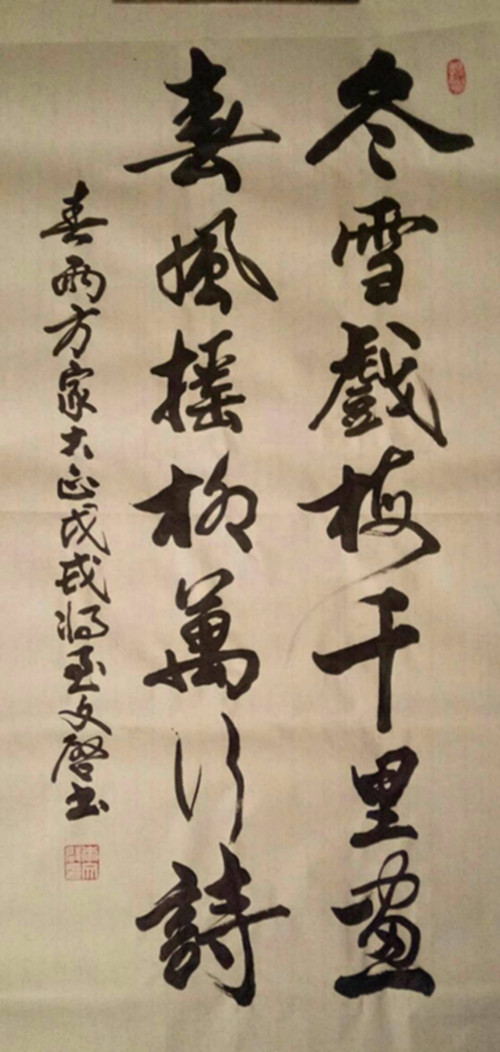 冬雪戲梅千里畫
春風摇柳萬行詩
春雨方家大正戊戌将至文啓书